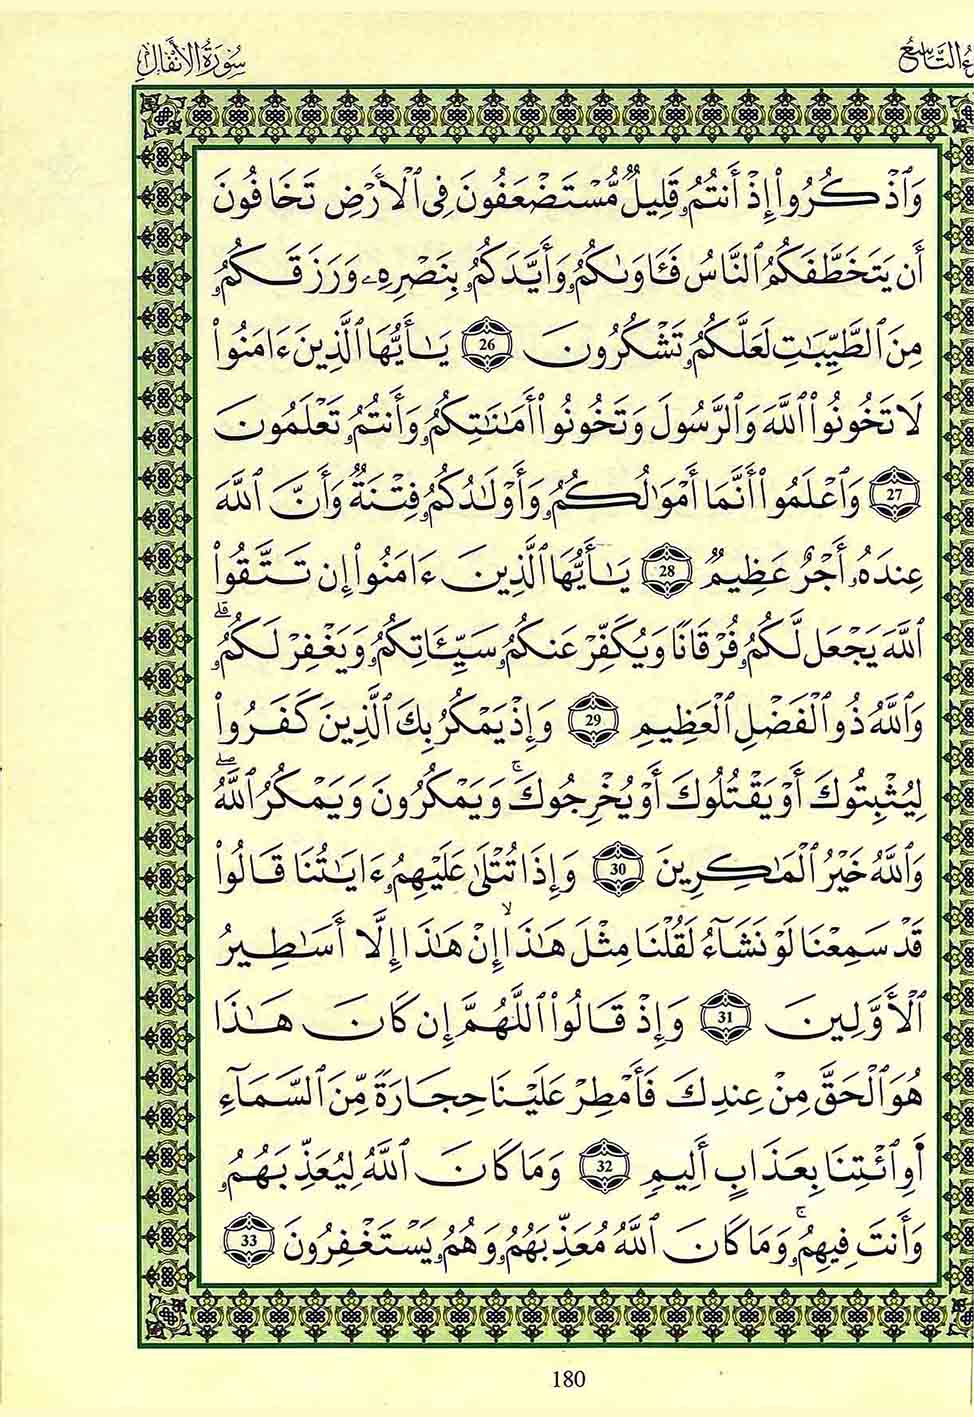 ءُ التَّاسِعُ سُورَةُ الأَنْفَالِ
وَٱذْكُرُوا۟ إِذْ أَنتُمُۥ قَلِيلٌ مُّسْتَضْعَفُونَ فِى ٱلْأَرْضِ تَخَافُونَ
أَن يَتَخَطَّفَكُمُ ٱلنَّاسُ فَـَٔاوَىٰكُمُۥ وَأَيَّدَكُمُۥ بِنَصْرِهِۦ وَرَزَقَكُمُۥ
مِنَ ٱلطَّيِّبَـٰتِ لَعَلَّكُمُۥ تَشْكُرُونَ 26 يَـٰأَيُّهَا ٱلَّذِينَ ءَامَنُوا۟
لَا تَخُونُوا۟ ٱللَّهَ وَٱلرَّسُولَ وَتَخُونُوا۟ أَمَـٰنَـٰتِكُمُۥ وَأَنتُمُۥ تَعْلَمُونَ
27 وَٱعْلَمُوا۟ أَنَّمَا أَمْوَٰلُكُمُۥ وَأَوْلَـٰدُكُمُۥ فِتْنَةٌ وَأَنَّ ٱللَّهَ
عِندَهُۥ أَجْرٌ عَظِيمٌ 28 يَـٰأَيُّهَا ٱلَّذِينَ ءَامَنُوا۟ إِن تَتَّقُوا۟
ٱللَّهَ يَجْعَل لَّكُمُۥ فُرْقَانًا وَيُكَفِّرْ عَنكُمُۥ سَيِّـَٔاتِكُمُۥ وَيَغْفِرْ لَكُمُۥ ۗ
وَٱللَّهُ ذُو ٱلْفَضْلِ ٱلْعَظِيمِ 29 وَإِذْ يَمْكُرُ بِكَ ٱلَّذِينَ كَفَرُوا۟
لِيُثْبِتُوكَ أَوْ يَقْتُلُوكَ أَوْ يُخْرِجُوكَ ۚ وَيَمْكُرُونَ وَيَمْكُرُ ٱللَّهُ ۖ
وَٱللَّهُ خَيْرُ ٱلْمَـٰكِرِينَ 30 وَإِذَا تُتْلَىٰ عَلَيْهِمُۥ ءَايَـٰتُنَا قَالُوا۟
قَدْ سَمِعْنَا لَوْ نَشَآءُ لَقُلْنَا مِثْلَ هَـٰذَا ۙ إِنْ هَـٰذَا إِلَّا أَسَـٰطِيرُ
ٱلْأَوَّلِينَ 31 وَإِذْ قَالُوا۟ ٱللَّهُمَّ إِن كَانَ هَـٰذَا
هُوَ ٱلْحَقَّ مِنْ عِندِكَ فَأَمْطِرْ عَلَيْنَا حِجَارَةً مِّنَ ٱلسَّمَآءِ
أَوِ ٱئْتِنَا بِعَذَابٍ أَلِيمٍ 32 وَمَا كَانَ ٱللَّهُ لِيُعَذِّبَهُمُۥ
وَأَنتَ فِيهِمُۥ ۚ وَمَا كَانَ ٱللَّهُ مُعَذِّبَهُمُۥ وَهُمُۥ يَسْتَغْفِرُونَ 33
180